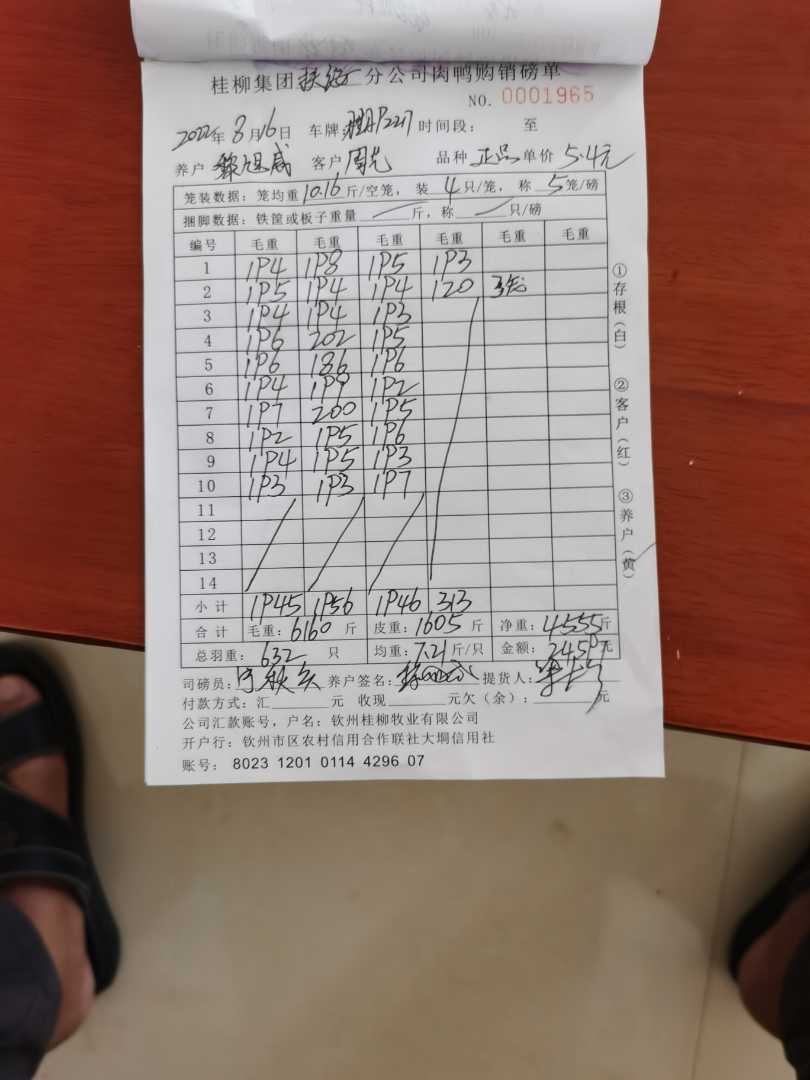 桂柳集团扶绥分公司肉鸭购销磅单
NO. 0001965
2022年8月16日 车牌: 时间段: 至
养户 客户 周 品种 正品 单价 5.4元
笼装数据: 笼均重10.16斤/空笼, 装4只/笼, 称5笼/磅
捆脚数据: 铁筐或板子重量 斤, 称 只/磅
编号 毛重 毛重 毛重 毛重 毛重 毛重
1 194 198 195 193
2 195 194 194 120
3 194 194 193
4 196 202 195
5 196 186 196
6 194 199 192
7 197 200 195
8 192 195 196
9 194 195 193
10 193 193 197
11
12
13
14
小计 1945 1956 1946 313
合计 毛重: 6160斤 皮重: 1605斤 净重: 4555斤
总羽重: 632只 均重: 7.21斤/只 金额: 24597元
司磅员: 养户签名: 提货人:
付款方式: 汇 元 收现 元欠(余): 元
公司汇款账号, 户名: 钦州桂柳牧业有限公司
开户行: 钦州市区农村信用合作联社大垌信用社
账号: 8023 1201 0114 4296 07
①存根(白)
②客户(红)
③养户(黄)